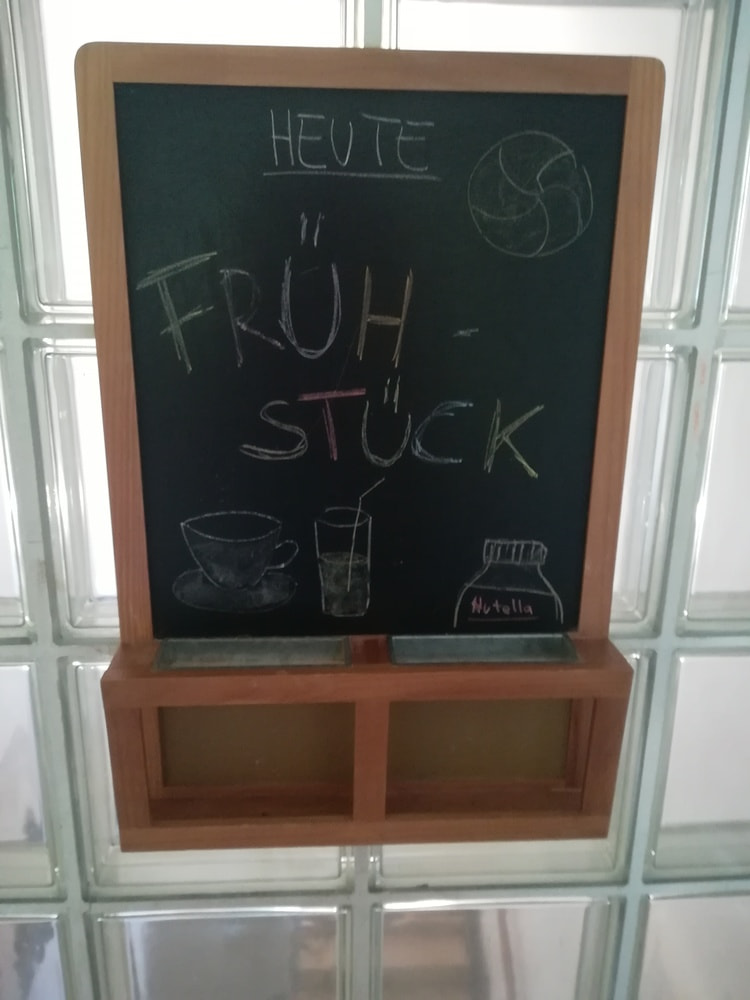 HEUTE
FRÜH -
STÜCK
Nutella